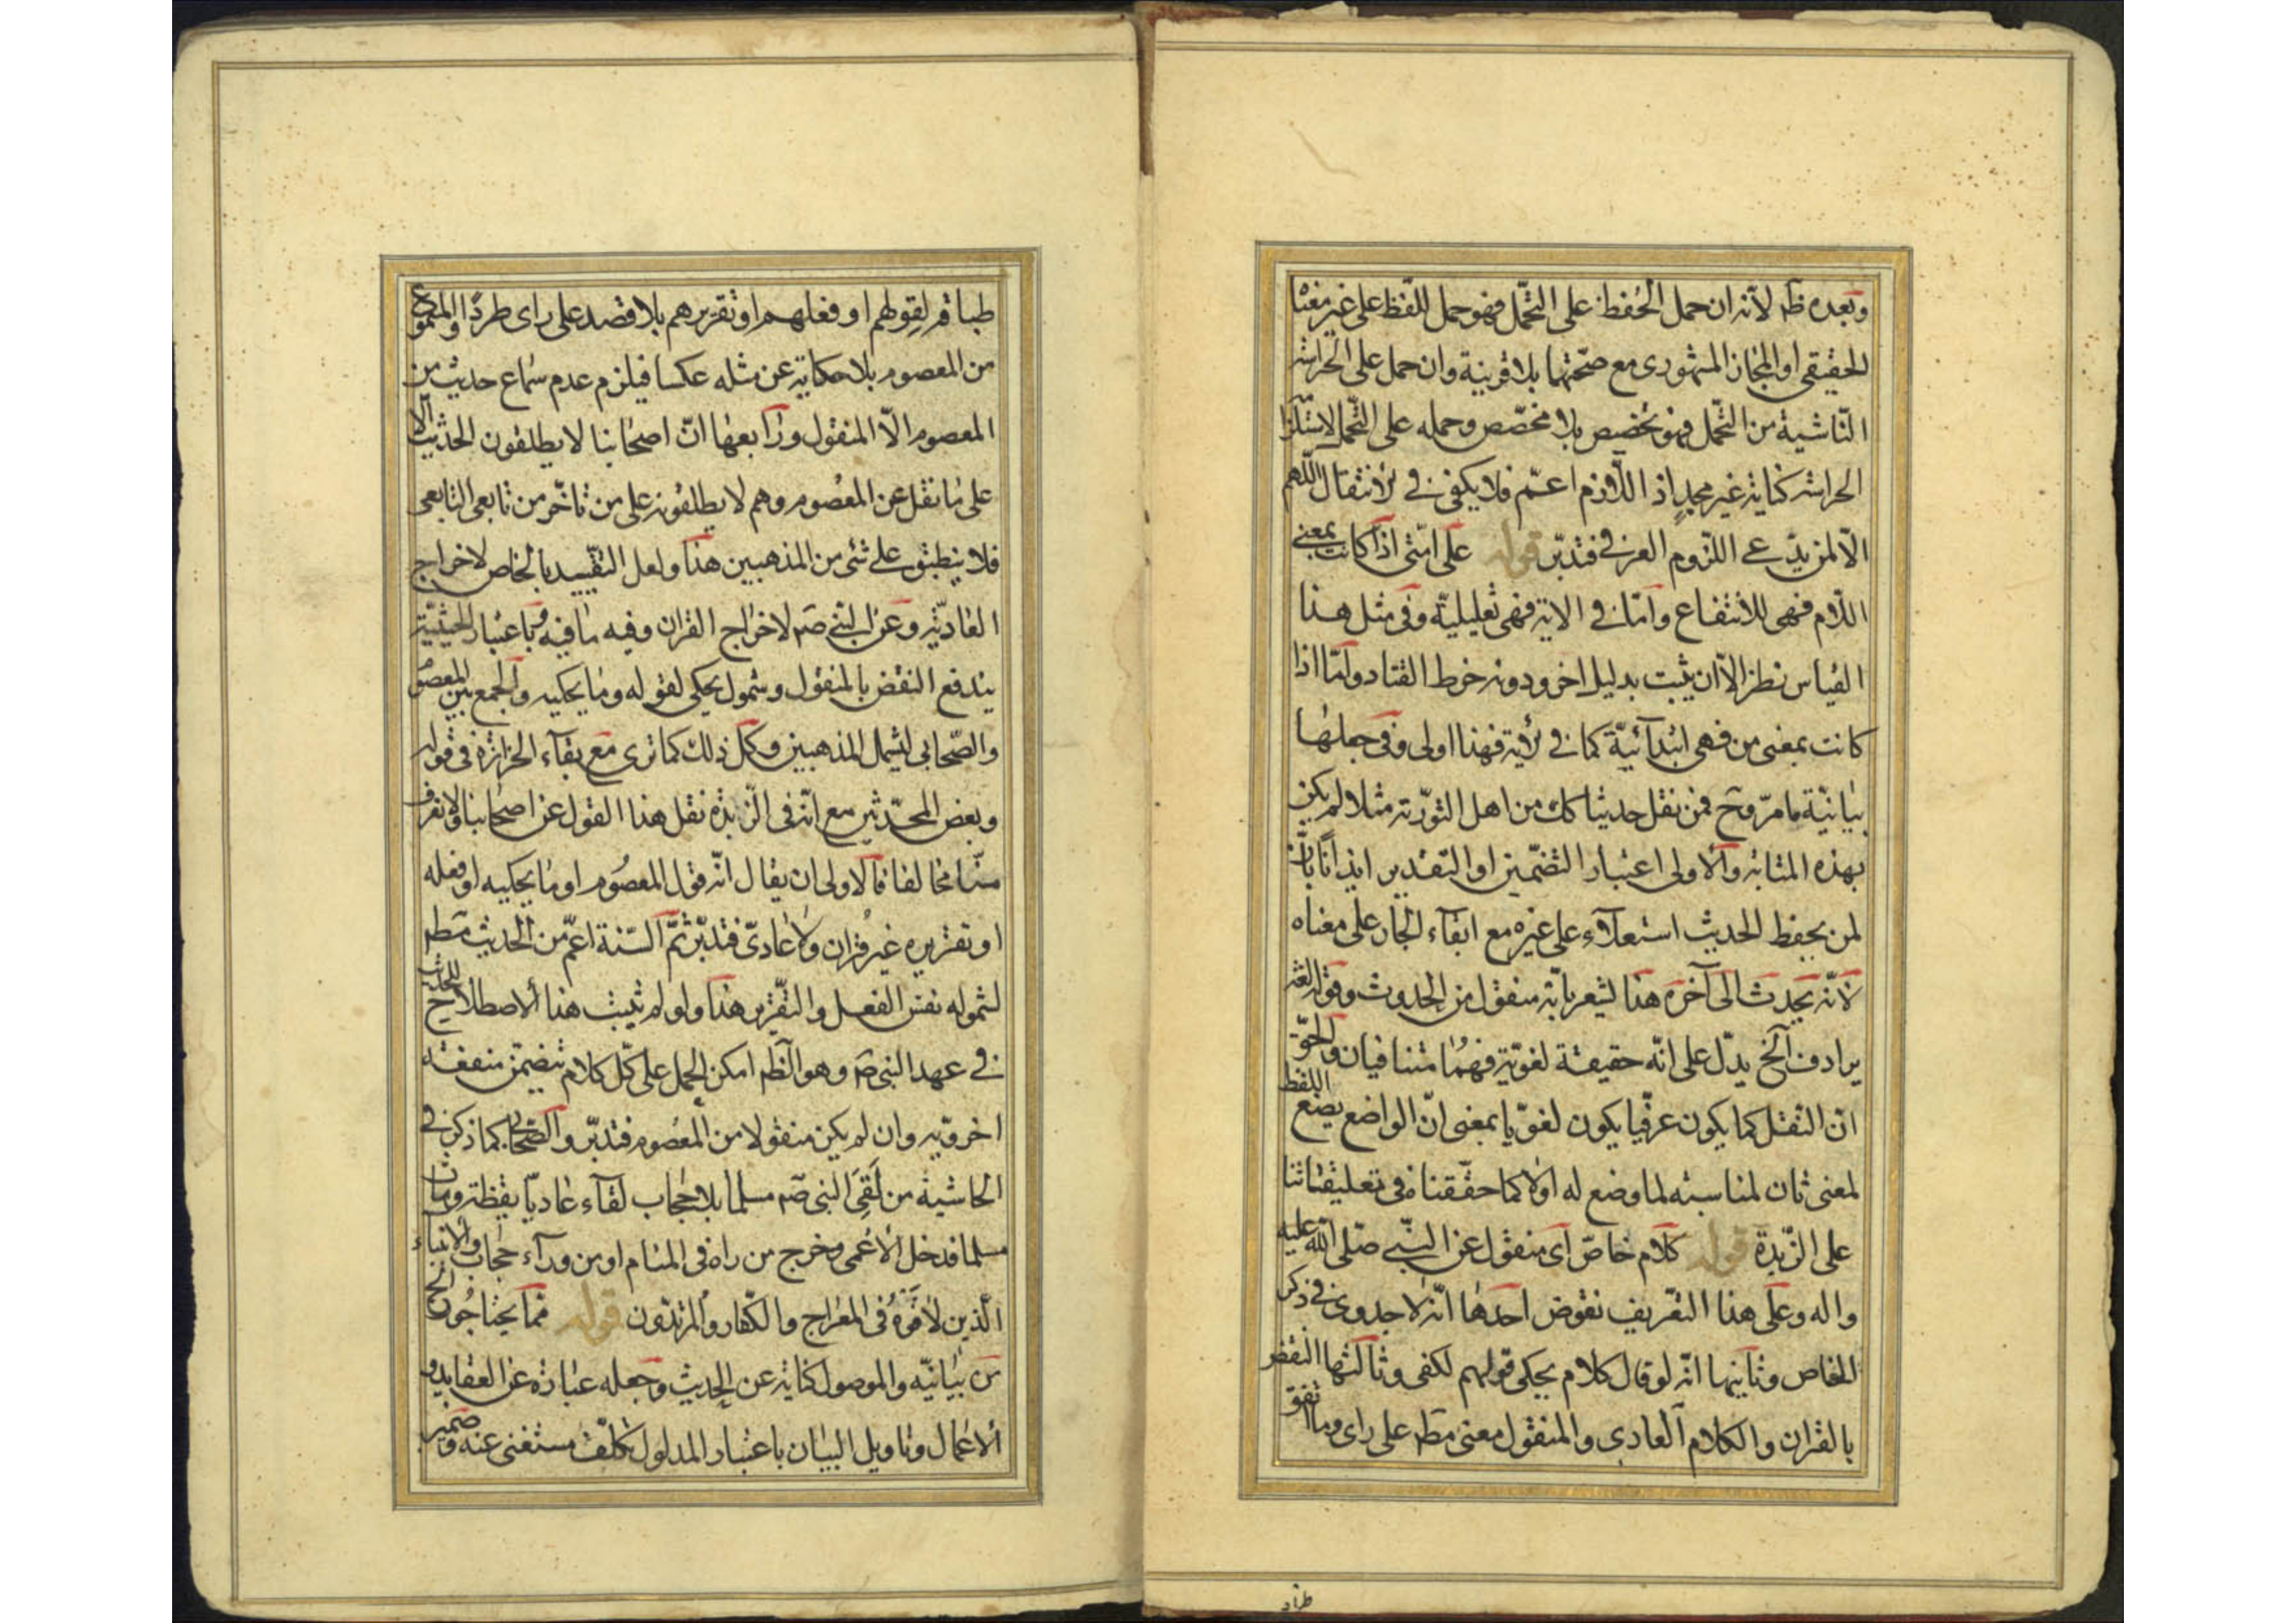 وبعده ظم لانه ان حمل الحفظ على التحمل فهو حمل اللفظ على غير معناه
الحقيقى او المجاز المشهورى مع صحتهما بلا قرينة وان حمل على الحراسة
الناشية من التحمل فهو تخصيص بلا مخصص وحمله على التحمل لاستلزا
الحراسة كناية غير مجدٍ اذ اللازم اعم فلا يكفى فى الانتقال اللهم
الا لمزيد على اللزوم العرفى فتدبر قوله على امتى اذا كانت بمعنى
اللام فهى للانتفاع واما فى الاية فهى تعليلية وفى مثل هذا
القياس نظر الا ان يثبت بدليل اخر ودونه خرط القتاد واما اذا
كانت بمعنى من فهى ابتدآئية كما فى الاية فهذا اولى وفى جعلها
بيانية ما مر وح فمن نقل حديثا كك من اهل التورية مثلا لم يكن
بهذه المثابة والاولى اعتبار التضمين او التقدير ايذانا بان
لمن يحفظ الحديث استعلآء على غيره مع ابقآء الجار على معناه
لانه يحدث الى آخره هذا يشعر بانه منقول من الحدوث وقوله لغة
يرادف الخ يدل على انه حقيقة لغوية فهما متنافيان والحق
ان النقل كما يكون عرفيا يكون لغويا بمعنى ان الواضع يضع اللفظ
لمعنى ثان لمناسبته لما وضع له اولا كما حققناه فى تعليقاتنا
على الزبدة قوله كلام خاص اى منقول عن النبى صلى الله عليه
واله وعلى هذا التعريف نقوض احدها انه لا جدوى فى ذكر
الخاص وثانيها انه لو قال كلام يحكى قولهم لكفى وثالثها النقض
بالقران والكلام العادى والمنقول معنى مطم على راى وما اتفق
طباقه
طباقه لقولهم او فعلهم او تقريرهم بلا قصد على راى طردا والمسموع
من المعصوم بلا حكاية عن مثله عكسا فيلزم عدم سماع حديث من
المعصوم الا المنقول ورابعها ان اصحابنا لا يطلقون الحديث الا
على ما نقل عن المعصوم وهم لا يطلقونه على من تاخر من تابعى التابعى
فلا ينطبق على شئ من المذهبين هذا ولعل التقييد بالخاص لاخراج
العادية وعن النبى صم لاخراج القران وفيه ما فيه وباعتبار الحيثية
يندفع النقض بالمنقول وشمول يحكى لقوله وما يحكيه والجمع بين المعصوم
والصحابى ليشمل المذهبين وكل ذلك كما ترى مع بقآء الحزازة فى قوله
وبعض المحدثين مع انه فى الزبدة نقل هذا القول عن اصحابنا ولا نعرف
منا مخالفا فالاولى ان يقال انه قول المعصوم او ما يحكيه او فعله
او تقريره غير قران ولا عادى فتدبر ثم السنة اعم من الحديث مطم
لشموله نفس الفعل والتقرير هذا ولو لم يثبت هذا الاصطلاح للحديث
فى عهد النبى صم وهو الظم امكن الحمل على كل كلام يتضمن منفعة
اخروية وان لم يكن منقولا من المعصوم فتدبر والصحابى كما ذكر فى
الحاشية من لقى النبى صم مسلما بلا حجاب لقآء عاديا يقظة ومات
مسلما فدخل الاعمى وخرج من راه فى المنام او من ورآء حجاب والانبياء
الذين لاقوه فى المعراج والكفار والمرتدون قوله مما يحتاجون الخ
من بيانية والموصول كناية عن الحديث وجعله عبارة عن العقايد و
الاعمال وتاويل البيان باعتبار المدلول تكلف مستغنى عنه وضمير